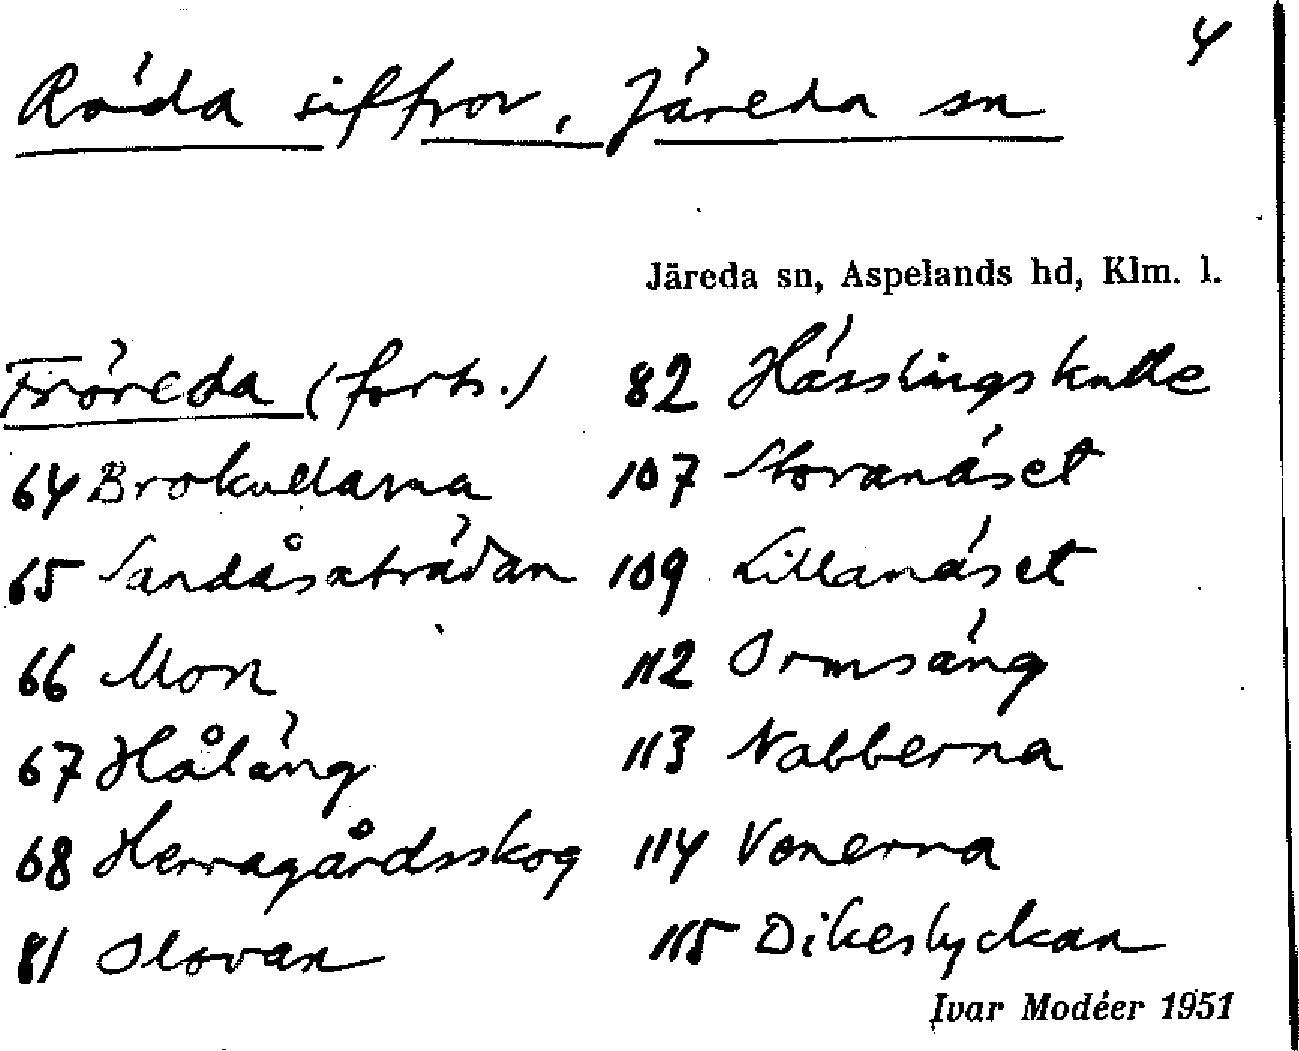 4
Röda siffror, Järeda sn
Järeda sn, Aspelands hd, Klm. l.
Fröreda (forts.)
64 Brokullarna
65 Sandåsaträdan
66 Mon
67 Håläng
68 Herragårdsskog
81 Olovan
82 Hässlingskulle
107 Storanäset
109 Lillanäset
112 Ormsäng
113 Nabberna
114 Vonerna
115 Dikeslyckan
Ivar Modéer 1951